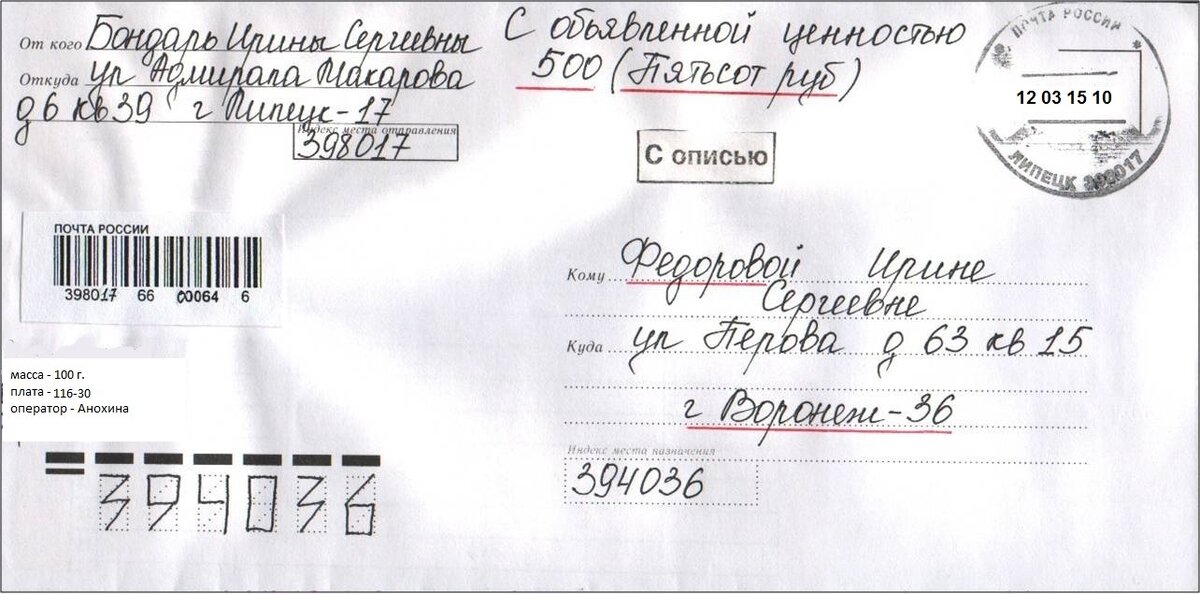 От кого Бондарь Ирины Сергеевны
Откуда ул Адмирала Макарова
д 6 кв 39 г Липецк-17
Индекс места отправления
398017
С объявленной ценностью
500 (Пятьсот руб)
С описью
ПОЧТА РОССИИ
12 03 15 10
ЛИПЕЦК 398017
ПОЧТА РОССИИ
398017 66 00064 6
масса - 100 г.
плата - 116-30
оператор - Анохина
Кому Федоровой Ирине
Сергеевне
Куда ул Перова д 63 кв 15
г Воронеж-36
Индекс места назначения
394036
394036